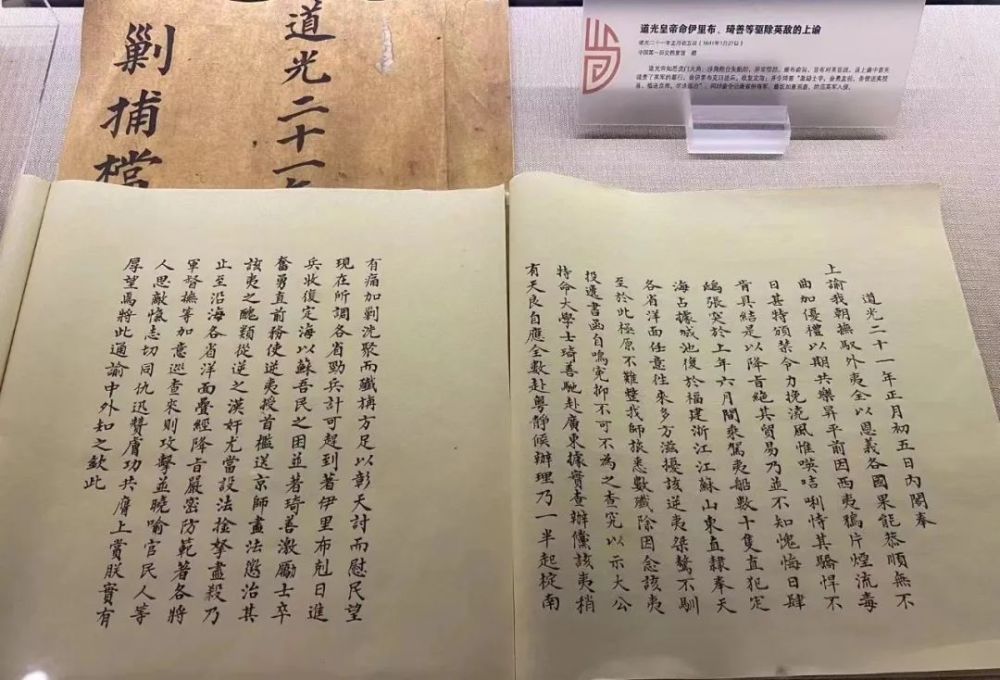 剿捕檔
道光二十一年
道光皇帝命伊里布、琦善等驱除英敌的上谕
道光二十一年正月初五日（1841年1月27日）
中国第一历史档案馆 藏
道光二十一年正月初五日內閣奉
上諭我朝撫馭外夷全以恩義各國果能恭順無不
曲加優禮以期共樂昇平前因西夷鴉片煙流毒
日甚特頒禁令力挽澆風惟𠸄咭唎恃其驕悍不
肯具結是以降旨絕其貿易乃並不知愧悔日肆
鴟張突於上年六月間乘駕夷船數十隻直犯定
海占據城池復於福建浙江江蘇山東直隸奉天
各省洋面任意往來多方滋擾該逆夷桀驁不馴
至於此極原不難整我師旅悉數殲除因念該夷
投遞書函自鳴冤抑不可不為之查究以示大公
特命大學士琦善馳赴廣東據實查辦儻該夷稍
有天良自應全數赴粵靜候辦理乃一半起椗南
有痛加剿洗聚而殲旃方足以彰天討而慰民望
現在所調各省勁兵計可趕到著伊里布剋日進
兵收復定海以蘇吾民之困並著琦善激勵士卒
奮勇直前務使逆夷授首檻送京師盡法懲治其
該夷之醜類從逆之漢奸尤當設法擒拏盡殺乃
止至沿海各省洋面疊經降旨嚴密防範著各將
軍督撫等加意巡查來則攻擊並曉喻官民人等
人思敵愾志切同仇迅贊膚功共膺上賞朕實有
厚望焉將此通諭中外知之欽此